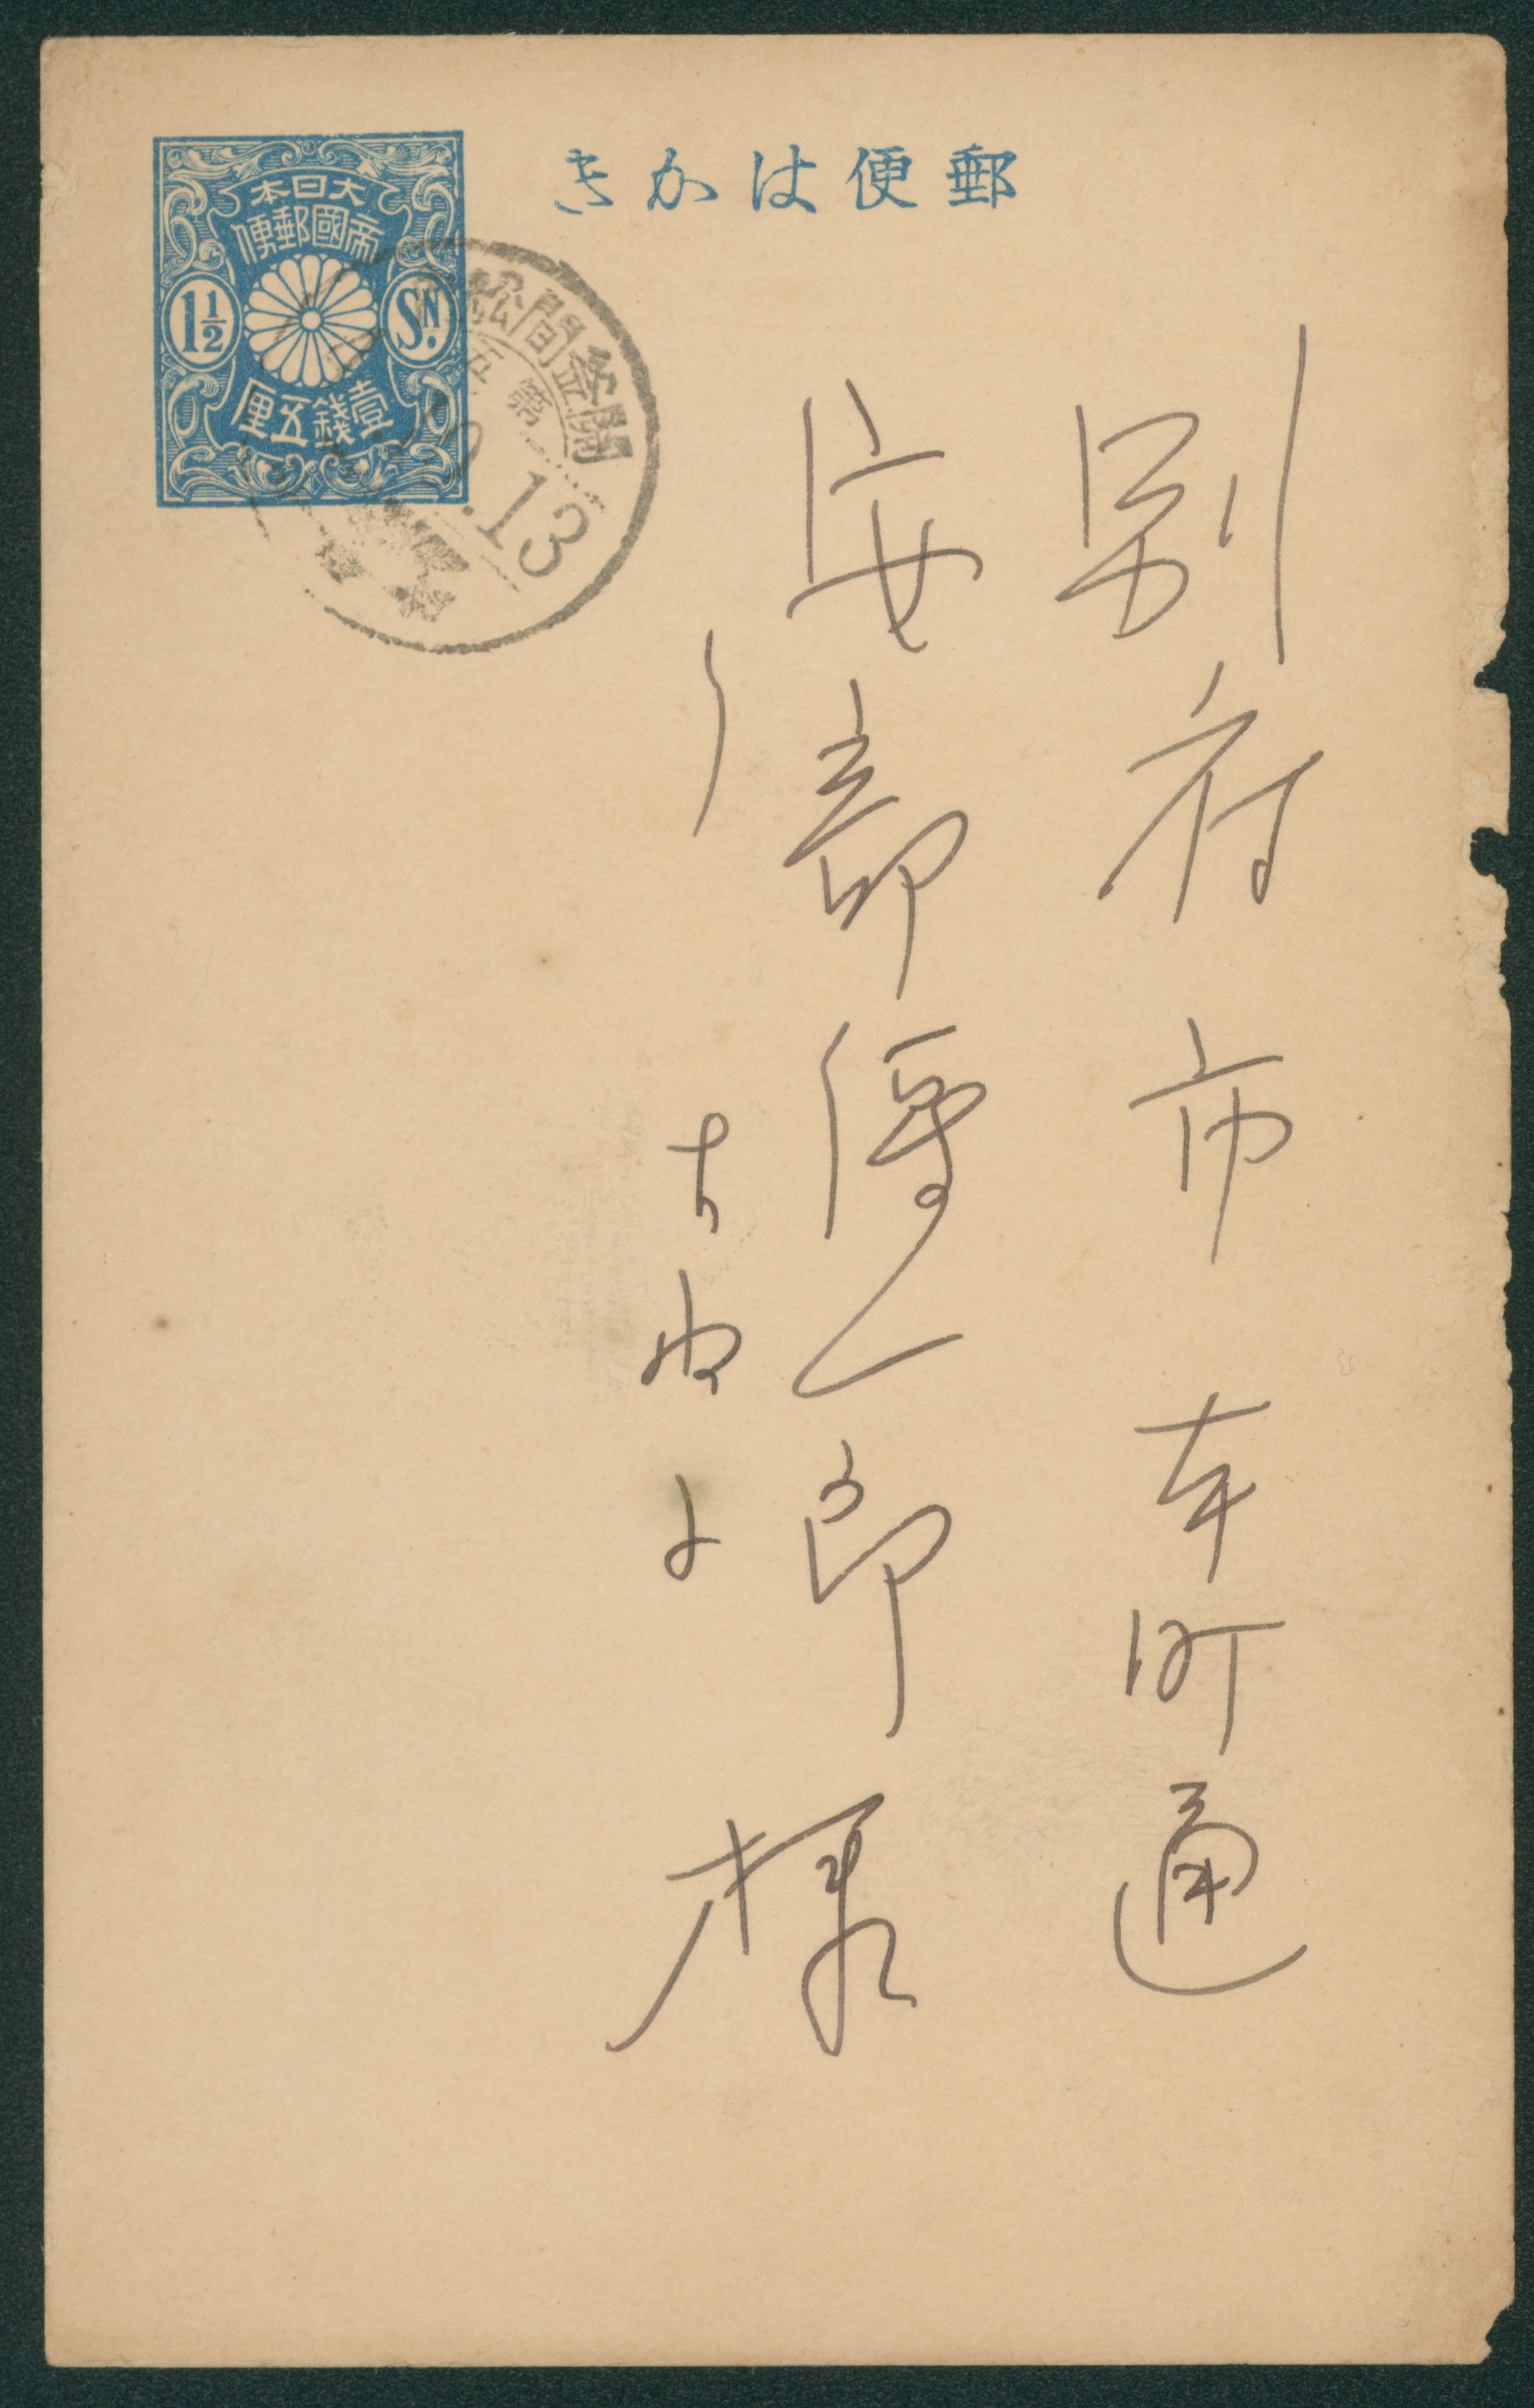 郵便はかき
大日本
帝國郵便
1½ SN.
壹錢五厘
關釜間
13
別府市本町通
安部傳一郎様